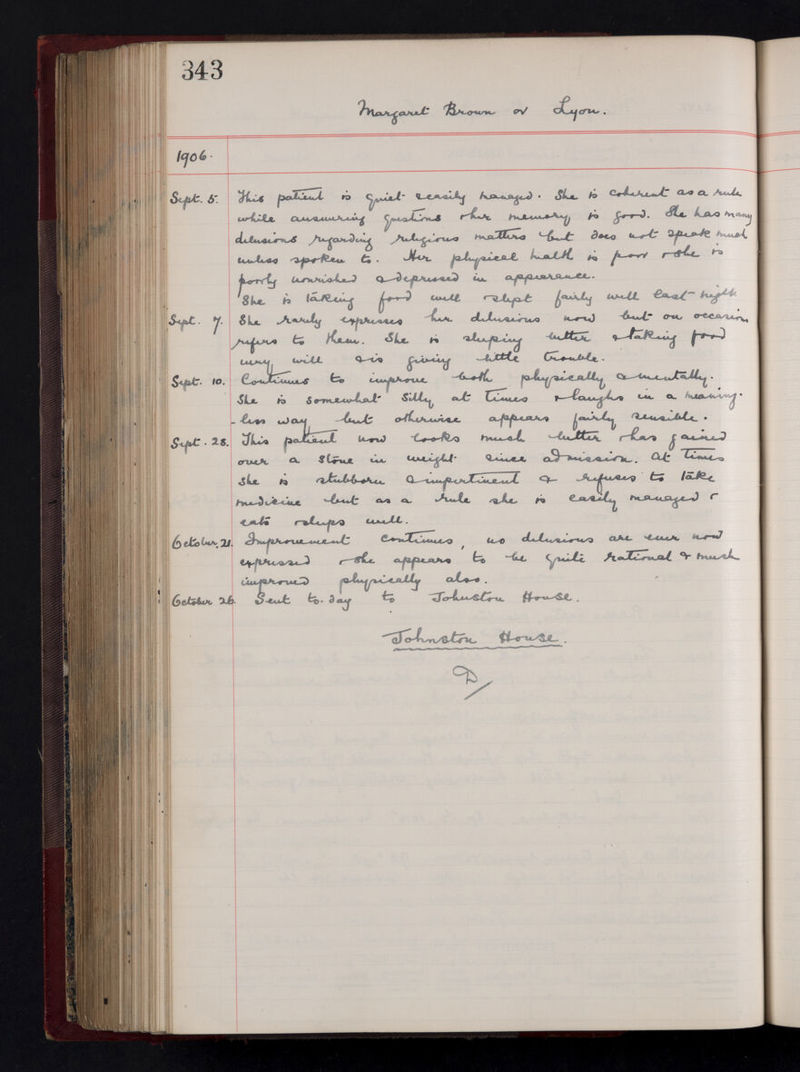 343
Margaret Brown or Lyon.
1906.
Sept. 5. This patient is quiet & easily managed. She is coherent as a rule
while answering questions & her memory is good. She has many
delusions regarding religious matters but does not speak much
unless spoken to. Her physical health is poor & she is
poorly nourished & depressed in appearance.
She is taking food well & slept fairly well last night
Sept. 7. She rarely expresses her delusions now but on occasion
refers to them. She is sleeping better & taking food
very well & is giving little trouble.
Sept. 10. Continues to improve both physically & mentally.
She is somewhat silly at times & laughs in a meaning-
-less way, but otherwise appears fairly sensible.
Sept. 28. This patient now looks much better & has gained
over a stone in weight since admission. At times
she is stubborn & impertinent & refuses to take
medicine but as a rule she is easily managed &
eats & sleeps well.
October, 21. Improvement continues, no delusions are ever now
expressed & she appears to be quite rational & much
improved physically also.
October 26. Sent to-day to Johnston House.
Johnston House.
D/